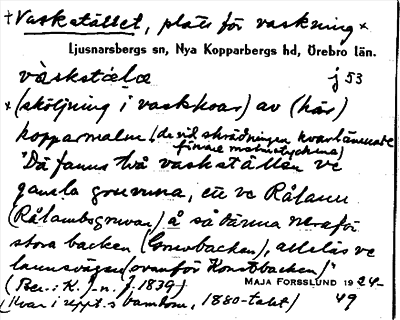 + Vaskstället, plats för vaskning x
Ljusnarsbergs sn, Nya Kopparbergs hd, Örebro län.
våskstäla j 53
x (sköljning i vaskkoar) av (här)
kopparmalm, (de vid skrädningen kvarlämnade
finare malmstyckena)
"Då fanns två vaskställen ve
gamla gruvuna, ett ve Rålamm
(Rålambsgruvan) å så därna neraför
stora backen (Gruvbacken), alltså ve
lannsvägen (ovanför Konstbacken)"
(Ber. i K. J-n. f. 1839) MAJA FORSSLUND 1924-
(Kvar i uppt:s barndom, 1880-talet) 49